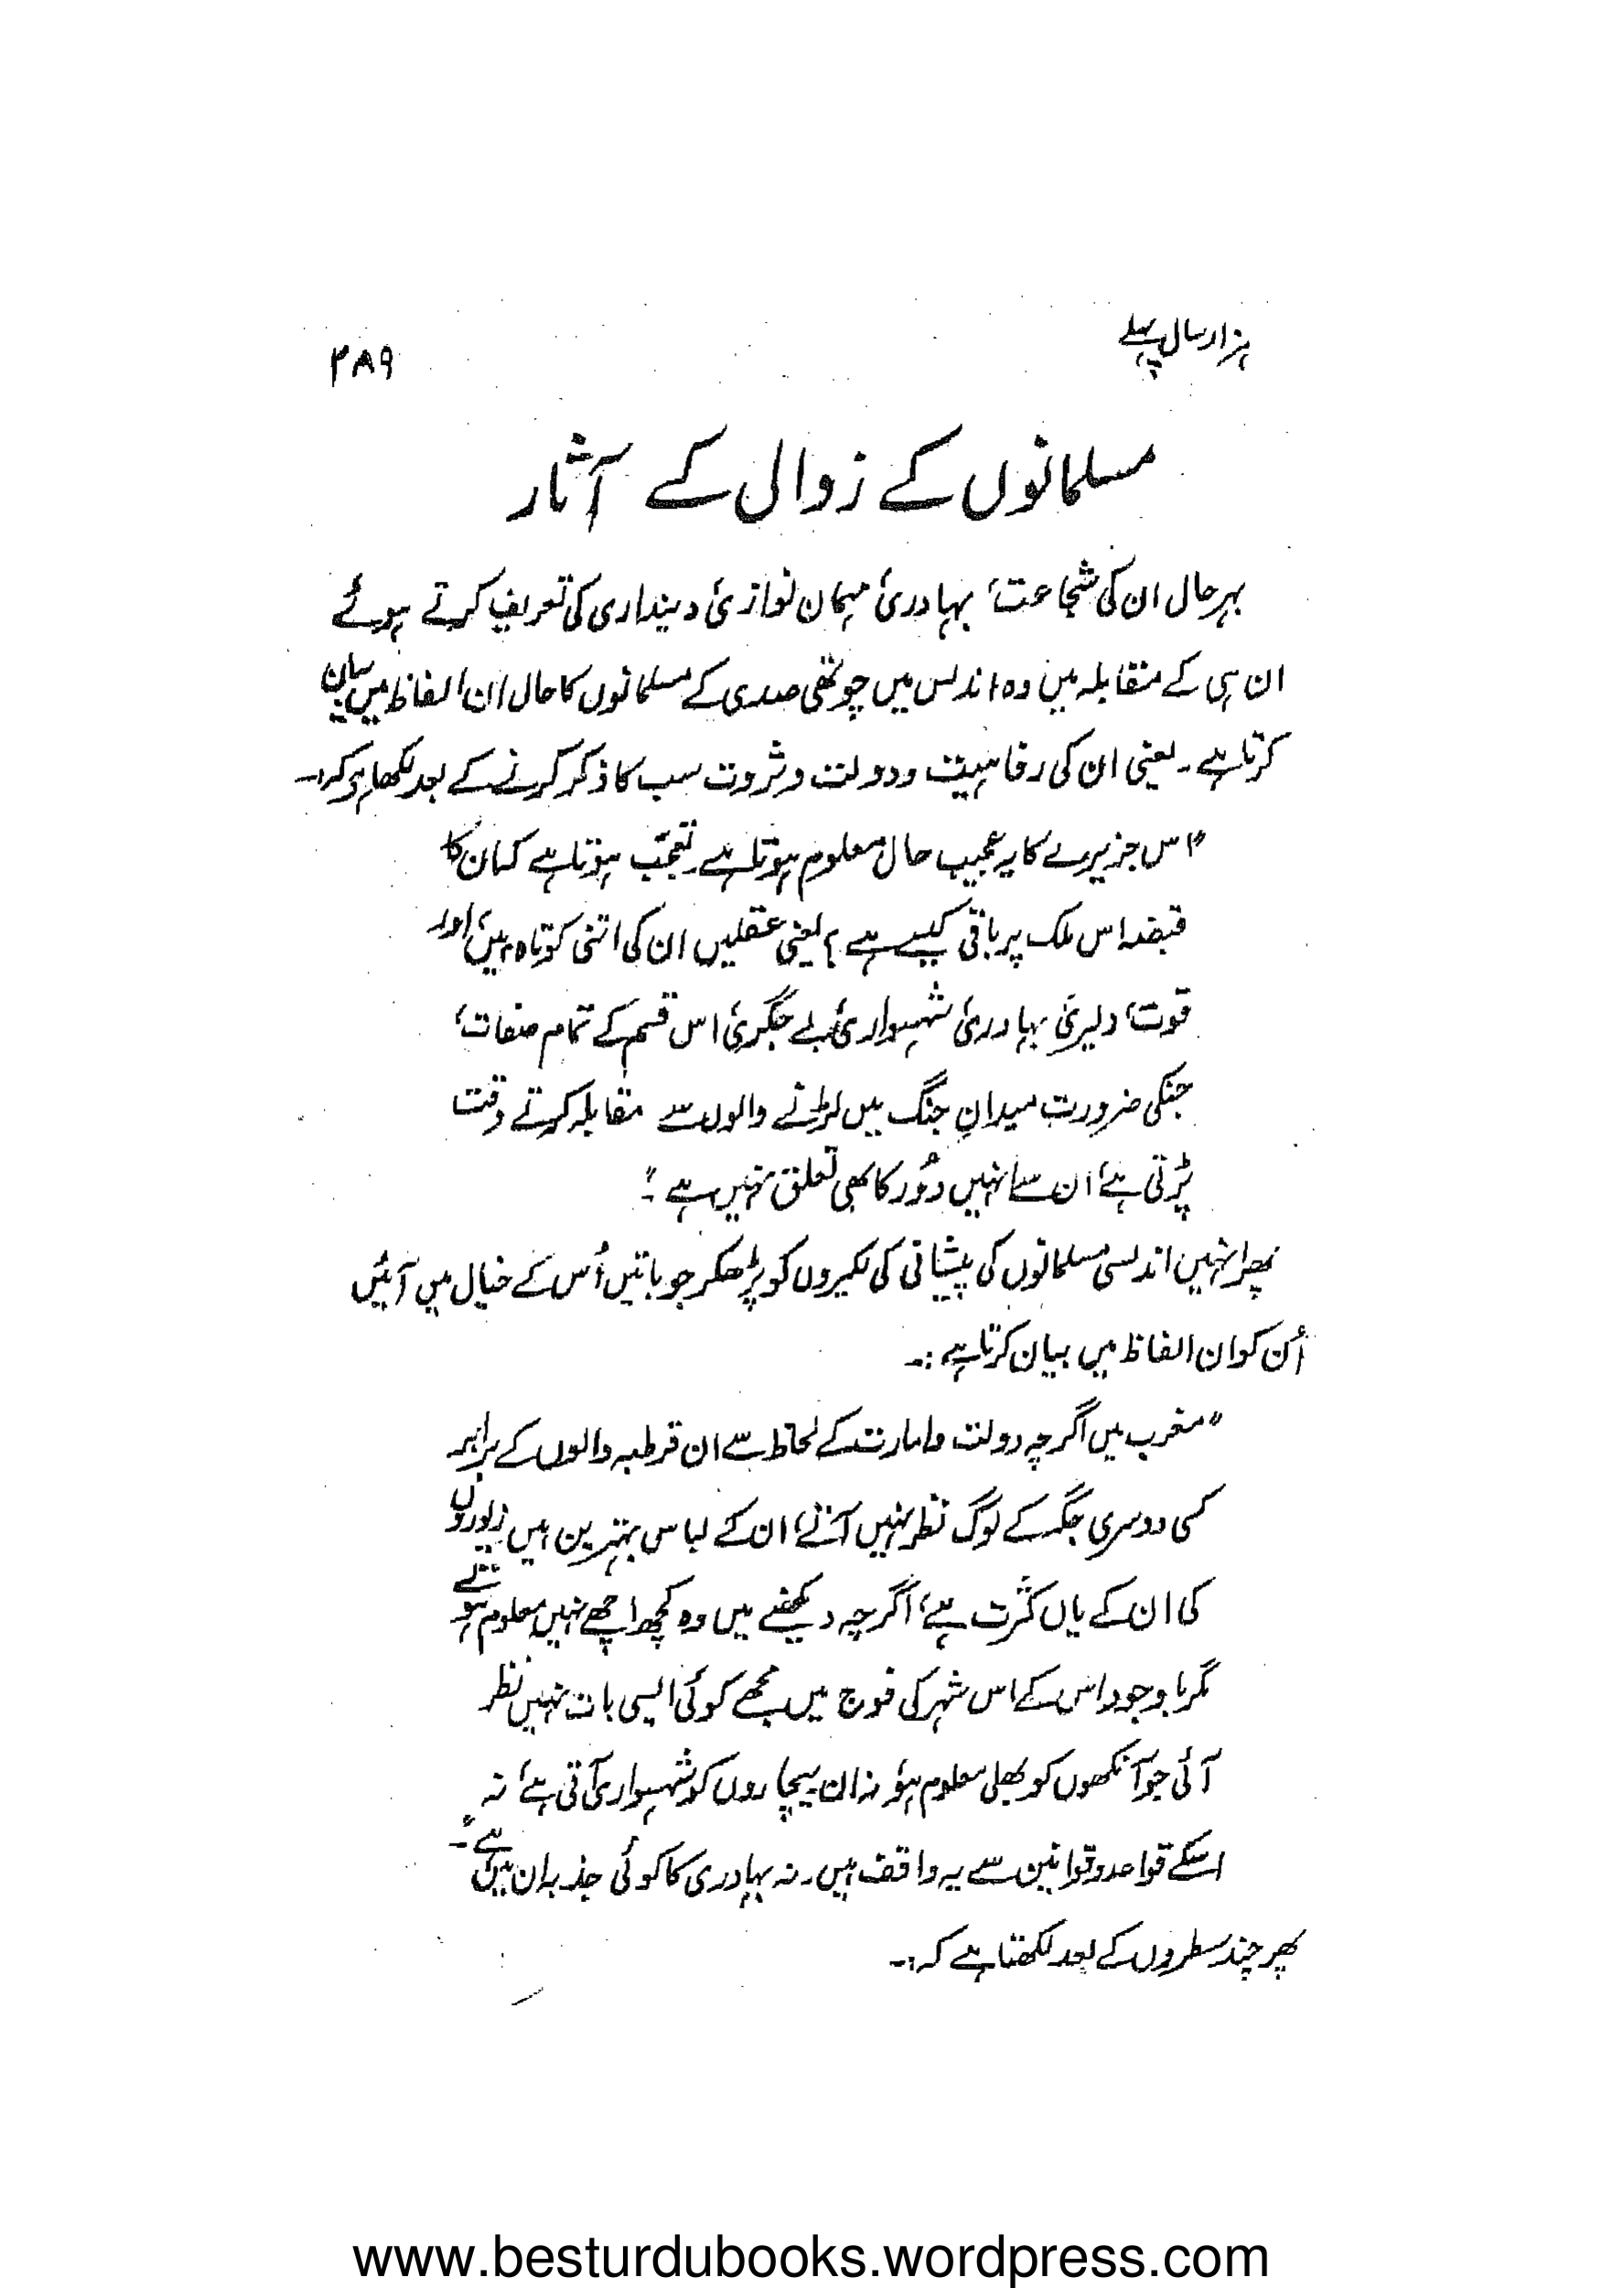 ہزار سال پہلے
۳۸۹
مسلمانوں کے زوال کے آثار
بہرحال ان کی شجاعت، بہادری، مہمان نوازی، دینداری کی تعریف کرتے ہوئے
ان ہی کے مقابلہ میں وہ اندلس میں چوتھی صدی کے مسلمانوں کا حال ان الفاظ میں بیان
کرتا ہے۔ یعنی ان کی رفاہیت و دولت و ثروت سب کا ذکر کرنے کے بعد لکھا ہو کہ:۔
"اس جزیرے کا یہ عجیب حال معلوم ہوتا ہے۔ تعجب ہوتا ہے کہ ان کا
قبضہ اس ملک پر باقی کیسے ہے؟ یعنی عقلیں ان کی اتنی کوتاہ ہیں، اور
قوت، دلیری، بہادری، شہسواری، بے جگری، اس قسم کے تمام صفات،
جنکی ضرورت میدانِ جنگ میں لڑنے والوں سے مقابلہ کرتے وقت
پڑتی ہے، ان سے انہیں دُور کا بھی تعلق نہیں ہے"۔
پھر انہیں اندلسی مسلمانوں کی پیشانی کی لکیروں کو پڑھکر جو باتیں اُس کے خیال میں آئیں
اُن کو ان الفاظ میں بیان کرتا ہے:۔
"مغرب میں اگرچہ دولت و امارت کے لحاظ سے ان قرطبہ والوں کے برابر
کسی دوسری جگہ کے لوگ نظر نہیں آتے، ان کے لباس بہترین ہیں زیوروں
کی ان کے یاں کثرت ہے، اگرچہ دیکھنے میں وہ کچھ اچھے نہیں معلوم ہوتے
مگر باوجود اس کے اس شہر کی فوج میں مجھے کوئی ایسی بات نہیں نظر
آئی جو آنکھوں کو بھلی معلوم ہو، نہ ان بیچاروں کو شہسواری آتی ہے، نہ
اسکے قواعد و قوانین سے یہ واقف ہیں۔ نہ بہادری کا کوئی جذبہ ان میں ہے"۔
پھر چند سطروں کے بعد لکھتا ہے کہ:۔
www.besturdubooks.wordpress.com